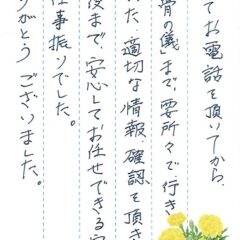 てお電話を頂いてから、
骨の儀」まで、要所々で行き
れた、適切な情報、確認を頂き
後まで、安心してお任せできる
仕事振りでした。
りがとうございました。